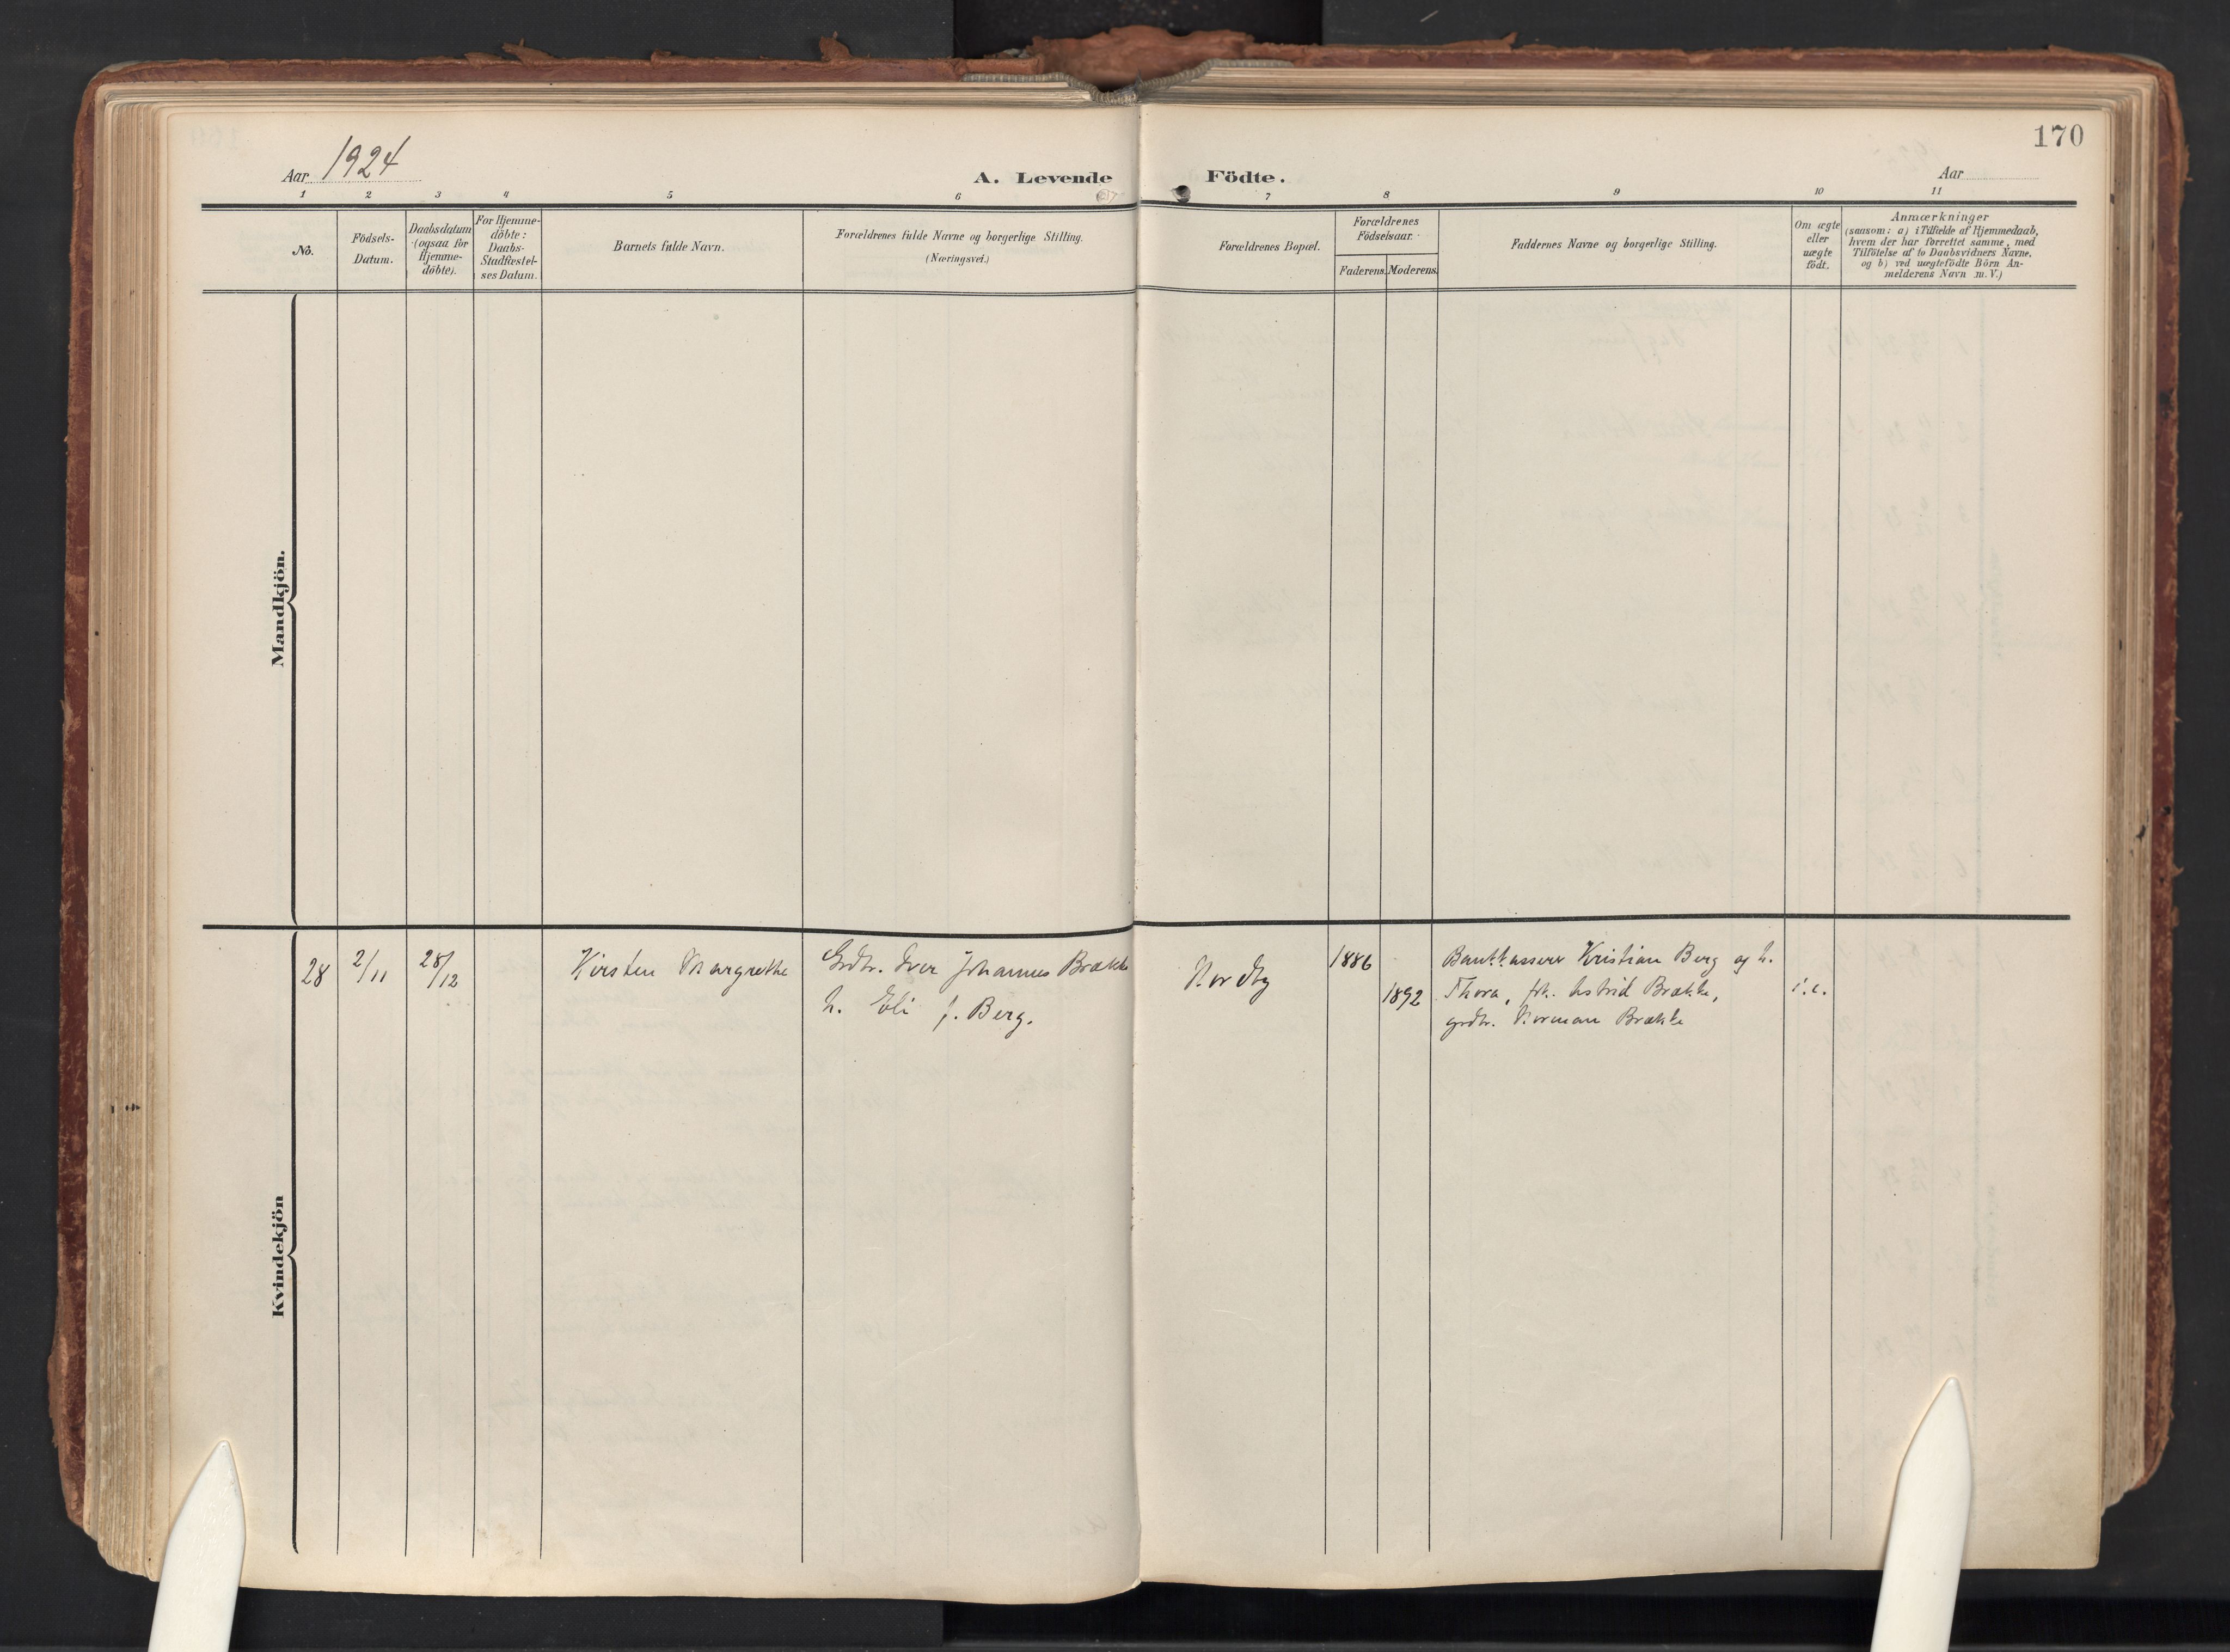 170
Aar 1924
A. Levende Födte.
Aar
1 2 3 4 5 6 7 8 9 10 11
No.
Födsels-
Datum.
Daabsdatum
(ogsaa for
Hjemme-
döbte).
For Hjemme-
döbte:
Daabs-
Stadfæstel-
ses Datum.
Barnets fulde Navn.
Forældrenes fulde Navne og borgerlige Stilling.
(Næringsvei.)
Forældrenes Bopæl.
Forældrenes
Födselsaar.
Faderens. Moderens.
Faddernes Navne og borgerlige Stilling.
Om ægte
eller
uægte
födt.
Anmærkninger
(saasom: a) i Tilfælde af Hjemmedaab,
hvem der har forrettet samme, med
Tilföielse af to Daabsvidners Navne,
og b) ved uægtefödte Börn An-
melderens Navn m. V.)
Mandkjön.
Kvindekjön
28
2/11
28/12
Kirsten Margrethe
Grdbr. Iver Johannes Brække
h. Eli f. Berg.
Nordby
1886
1892
Bankkasserer Kristian Berg og h.
Thora, frk. Astrid Brække,
grdbr. Norman Brække